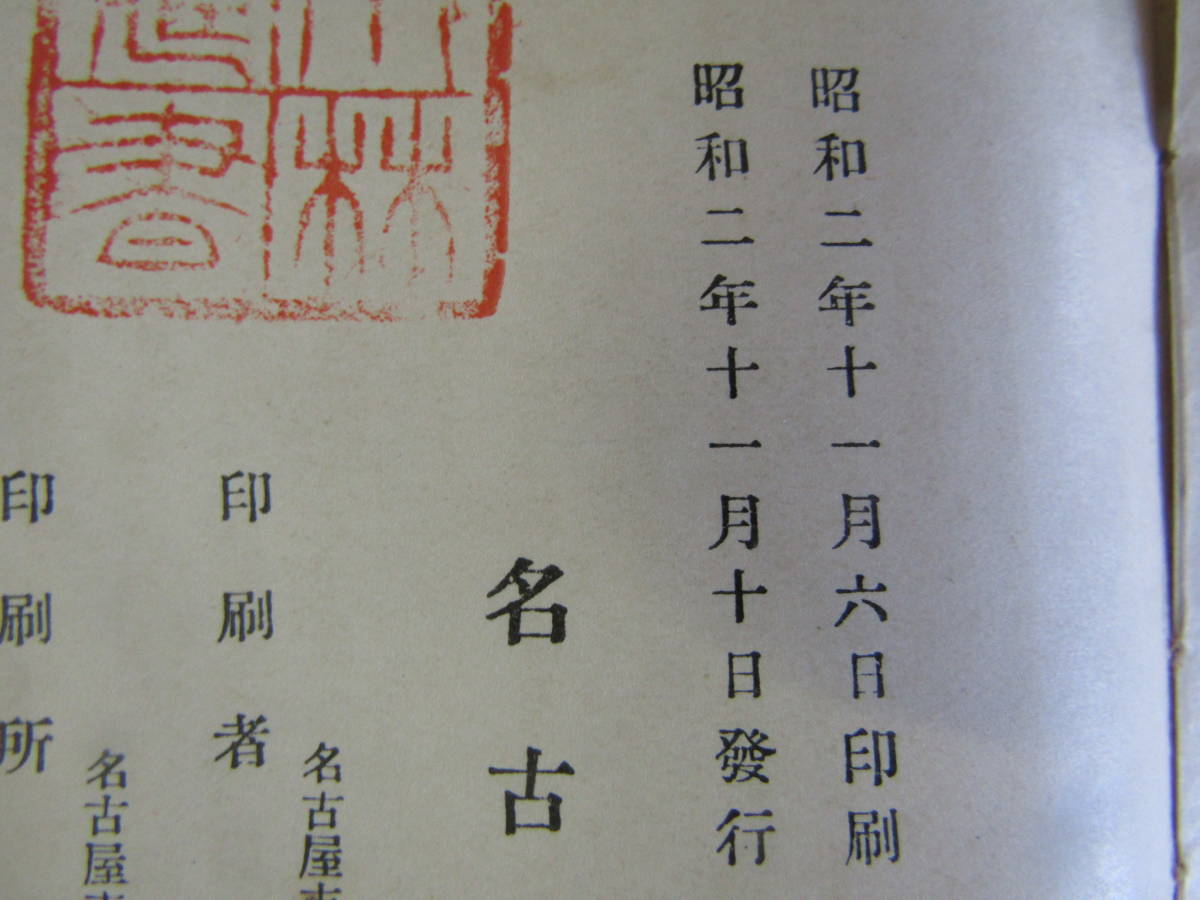 昭和二年十一月六日印刷
昭和二年十一月十日發行
名古
名古屋市
印刷者
名古屋市
印刷所